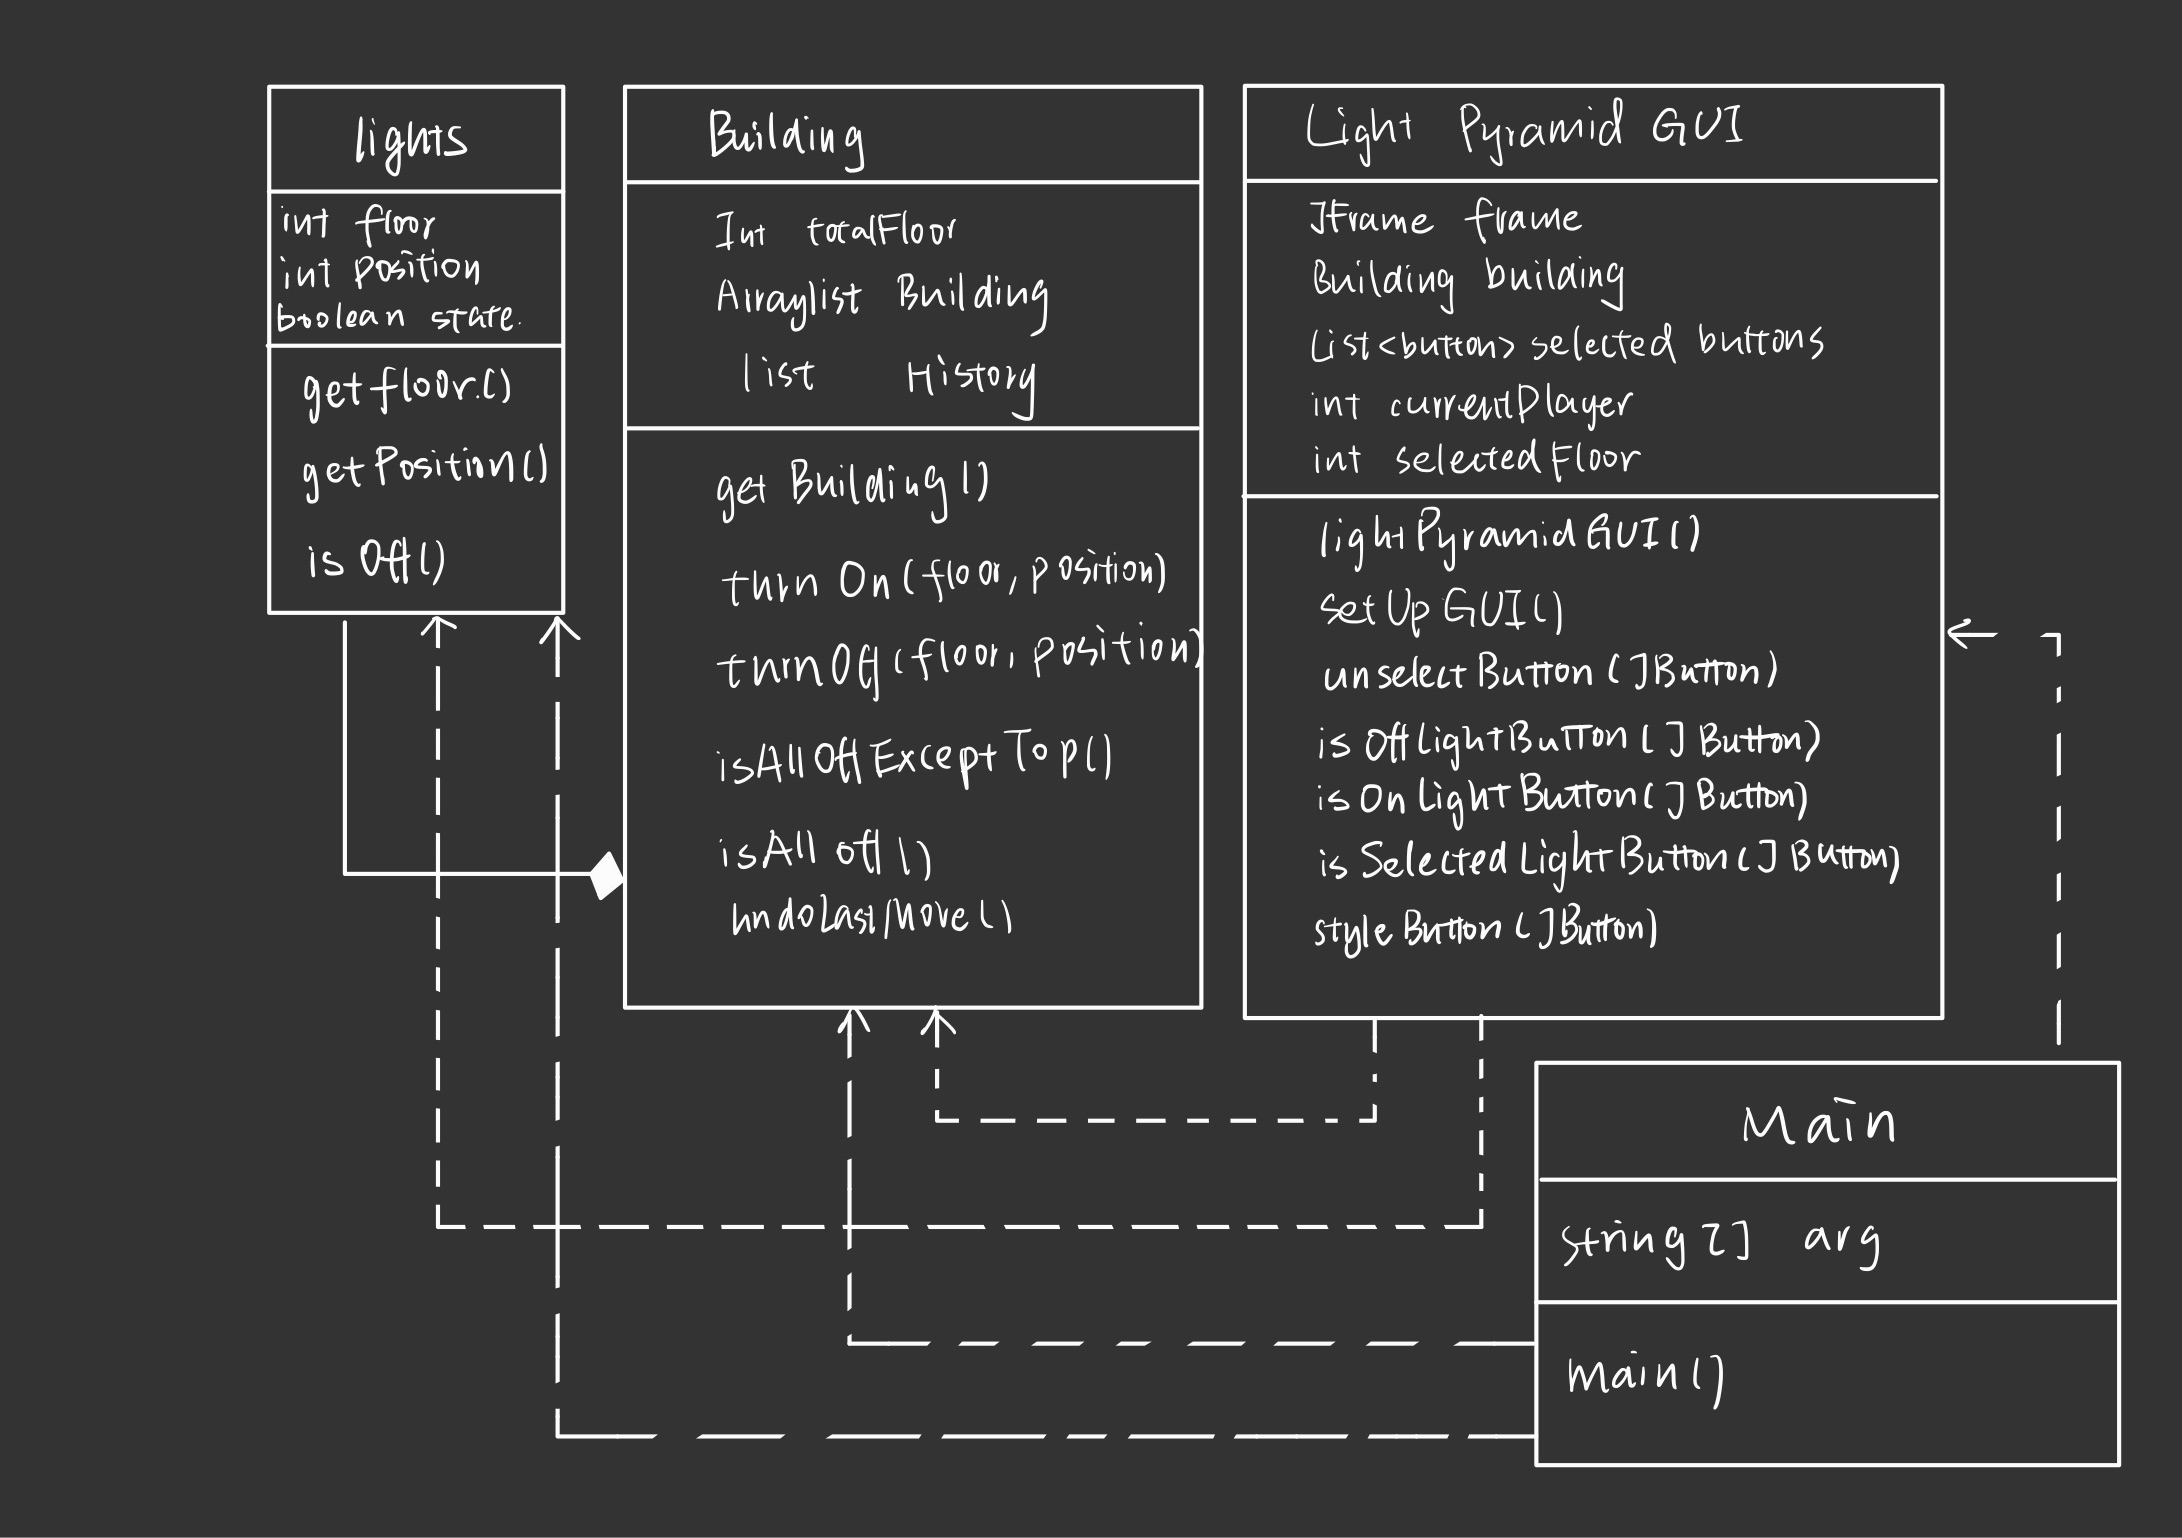 lights
int floor
int position
boolean state.
getfloor.()
getPosition()
is Off()
Building
Int totalFloor
Arraylist Building
list History
get Building()
turn On(floor, position)
turnOff(floor, position)
isAllOffExceptTop()
isAll off()
undoLastMove()
Light Pyramid GUI
JFrame frame
Building building
List<button> selected buttons
int currentPlayer
int selectedFloor
lightPyramidGUI()
setUpGUI()
unselectButton(JButton)
isOffLightButton(JButton)
isOnLightButton(JButton)
isSelectedLightButton(JButton)
styleButton(JButton)
Main
string[] arg
main()